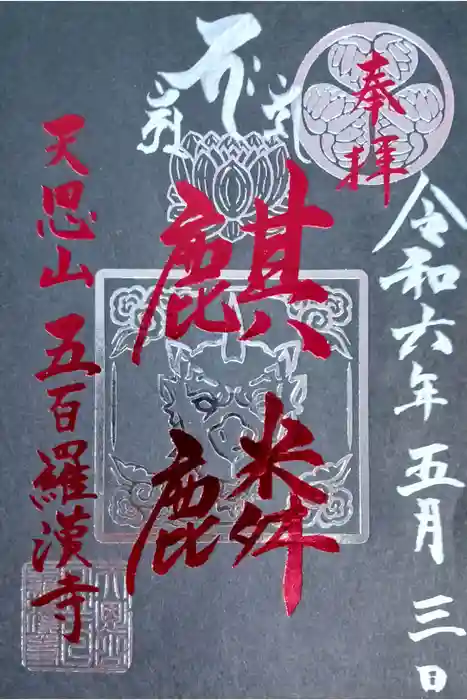 奉拝
令和六年五月三日
麒麟
天恩山五百羅漢寺